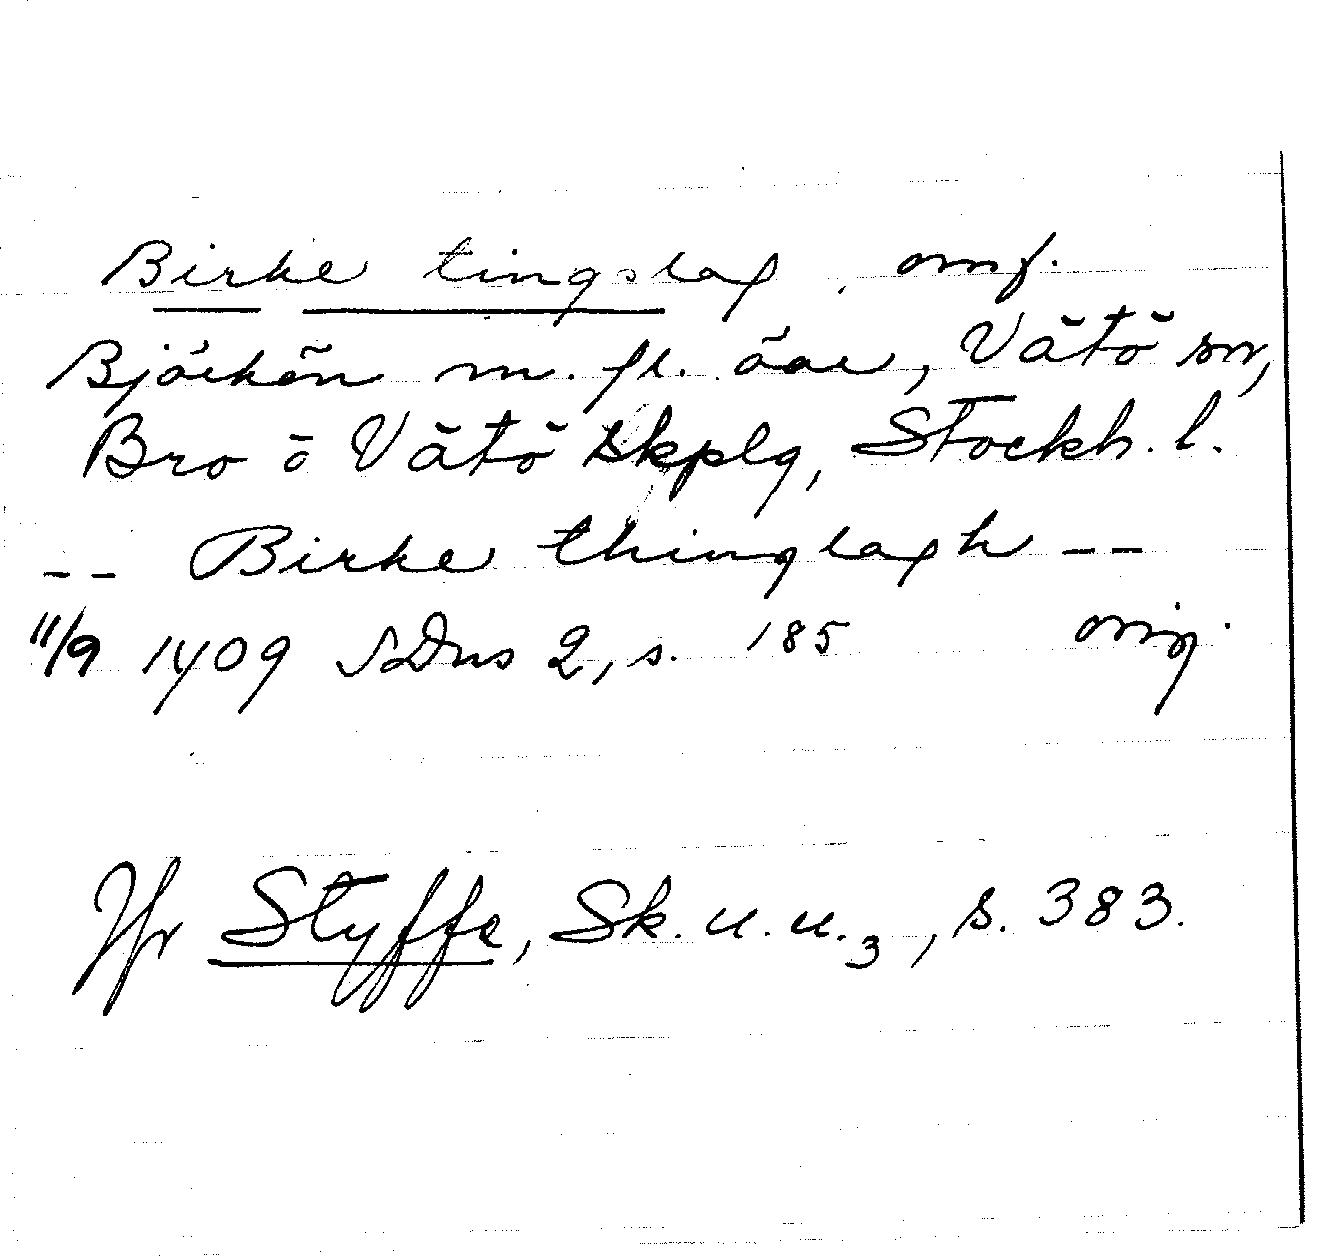 Birke tingslag, omf.
Björkön m. fl. öar, Vätö sn,
Bro o Vätö skplg, Stockh. l.
-- Birke thinglagh --
11/9 1409 SDns 2, s. 185 orig.
Jfr Styffe, Sk. u. u.3, s. 383.